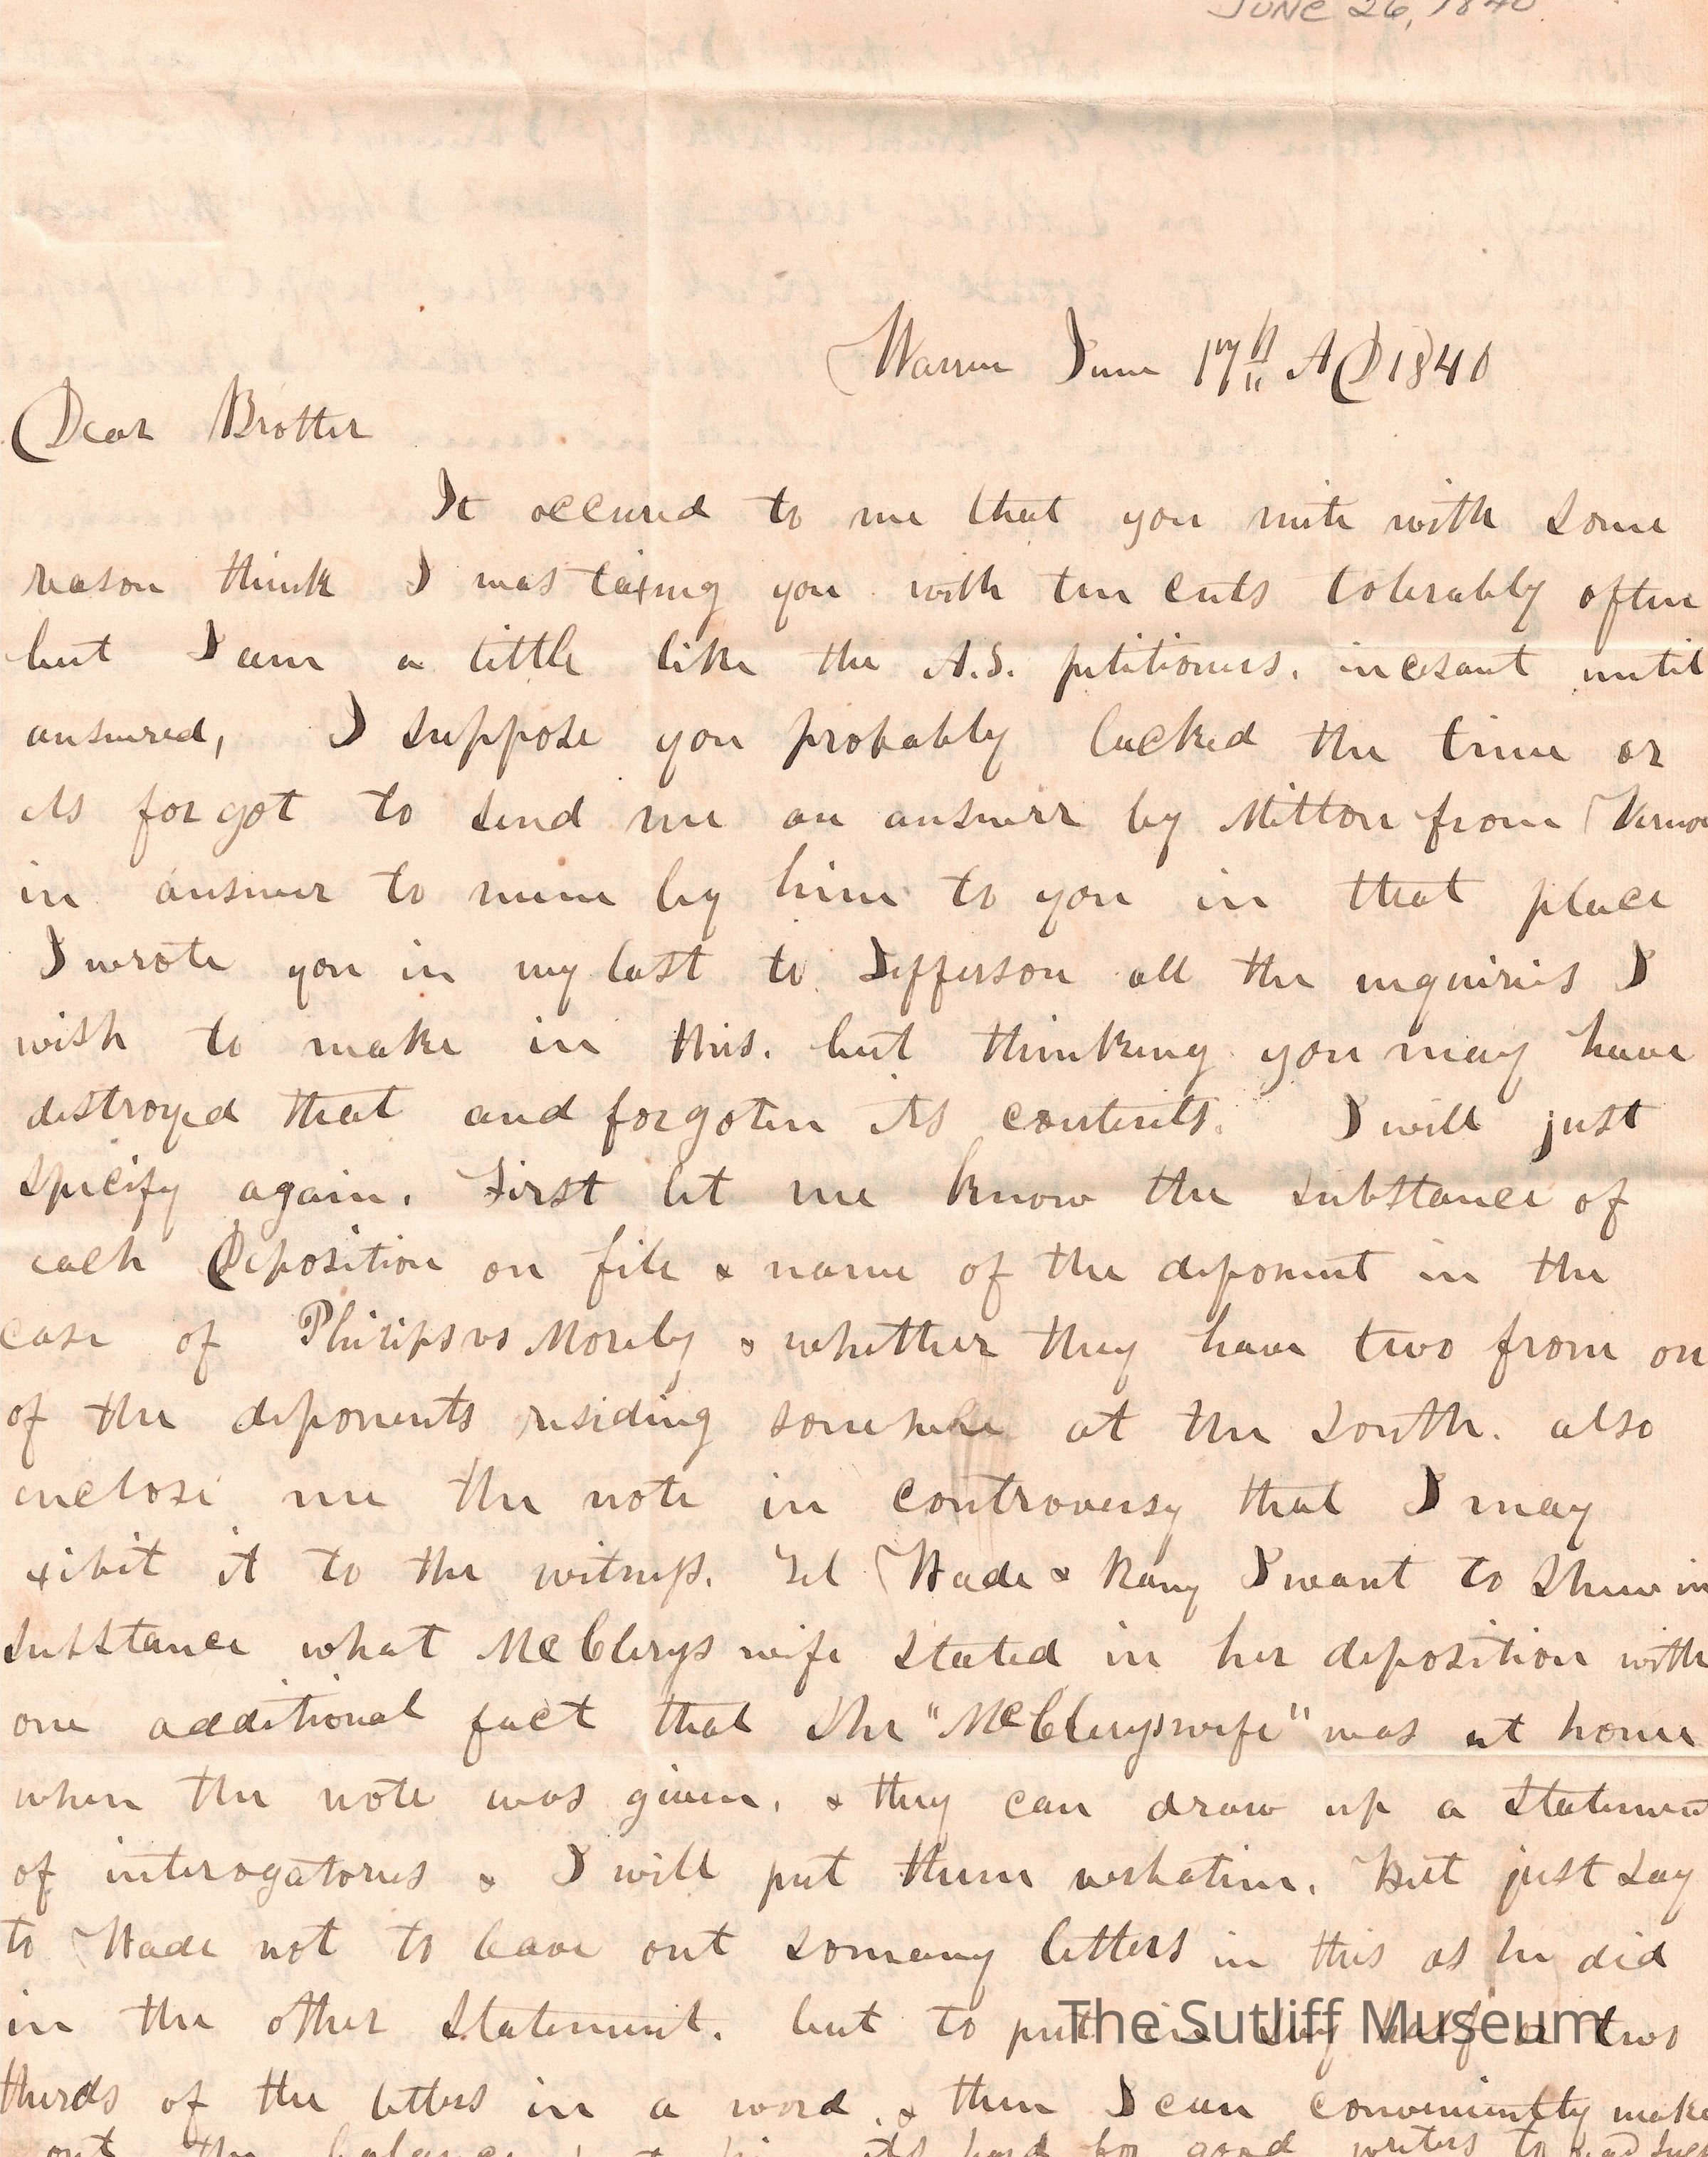 JUNE 26, 1840
Warren June 17th AD 1840
Dear Brother
It occured to me that you mite with some
reason think I was taxing you with ten cents tolerably often
but I am a little like the A.S. petitioners. incesant until
answered, I suppose you probably lacked the time or
els forgot to send me an answer by Milton from Vernon
in answer to mine by him to you in that place
I wrote you in my last to Jefferson all the inquiries I
wish to make in this. but thinking you may have
destroyed that and forgoten its contents. I will just
specify again. First let me know the substance of
each Deposition on file & name of the deponent in the
case of Philips vs Morely & whether they have two from on
of the deponents residing somewhere at the South. also
inclose me the note in controversy that I may
exibit it to the witness. Tel Wade & Rany I want to shew in
substance what McClerys wife stated in her deposition with
one additional fact that she "McClerys wife" was at home
when the note was given. & they can draw up a statement
of interogatories & I will put them verbatim. But just say
to Wade not to leave out somany letters in this as he did
in the other statement. but to put in say half or two
thirds of the letters in a word. & then I can conveniently make
out the balance its hard for good writers to read such
The Sutliff Museum